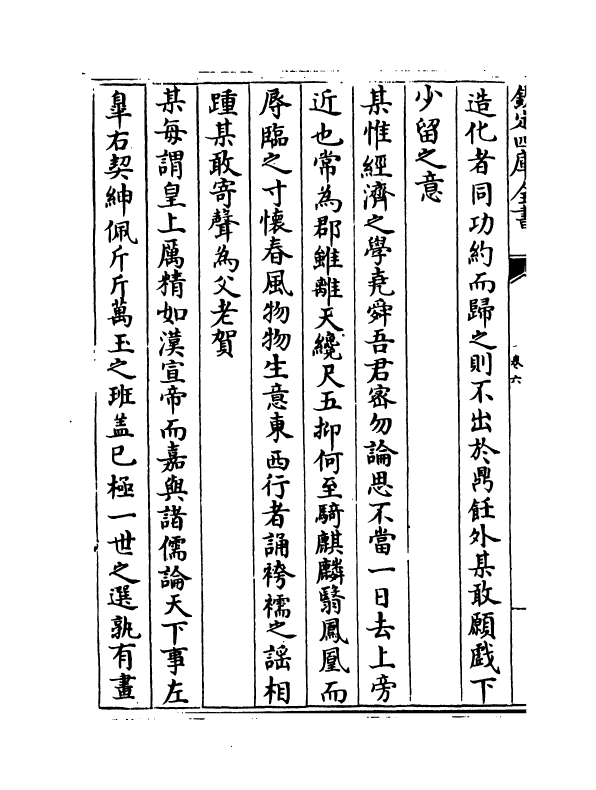 欽定四庫全書
卷六
造化者同功約而歸之則不出於鼎飪外某敢願戯下
少留之意
某惟經濟之學堯舜吾君密勿論思不當一日去上旁
近也常為郡雖離天纔尺五抑何至騎麒麟翳鳳凰而
辱臨之寸懷春風物物生意東西行者誦袴襦之謡相
踵某敢寄聲為父老賀
某每謂皇上厲精如漢宣帝而嘉與諸儒論天下事左
臯右契紳佩斤斤萬玉之班盖已極一世之選孰有畫